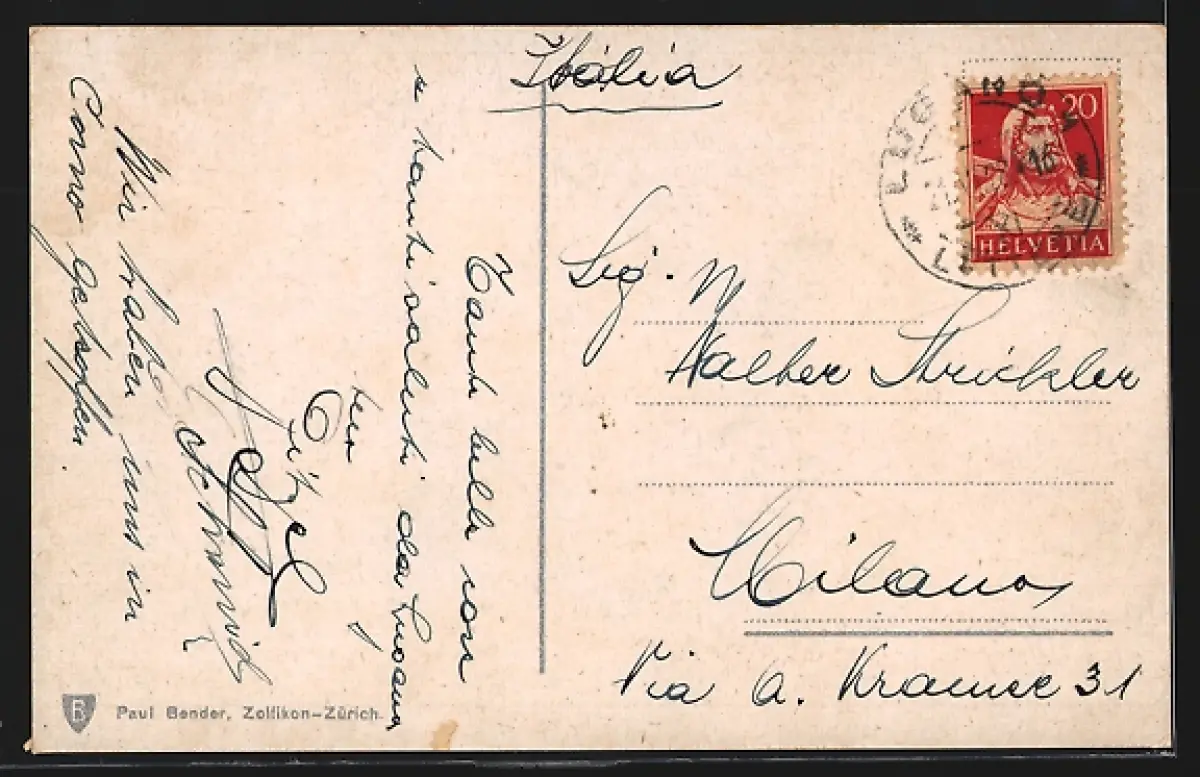 Itália
LUGANO
LETTERE
20
HELVETIA
Sig. W
Walher Strickler
Milano
Via A. Kramer 31
Tanti belle cose
e tanti saluti da Lugano
Wir haben uns in
Como getroffen.
Paul Bender, Zollikon-Zürich.
B